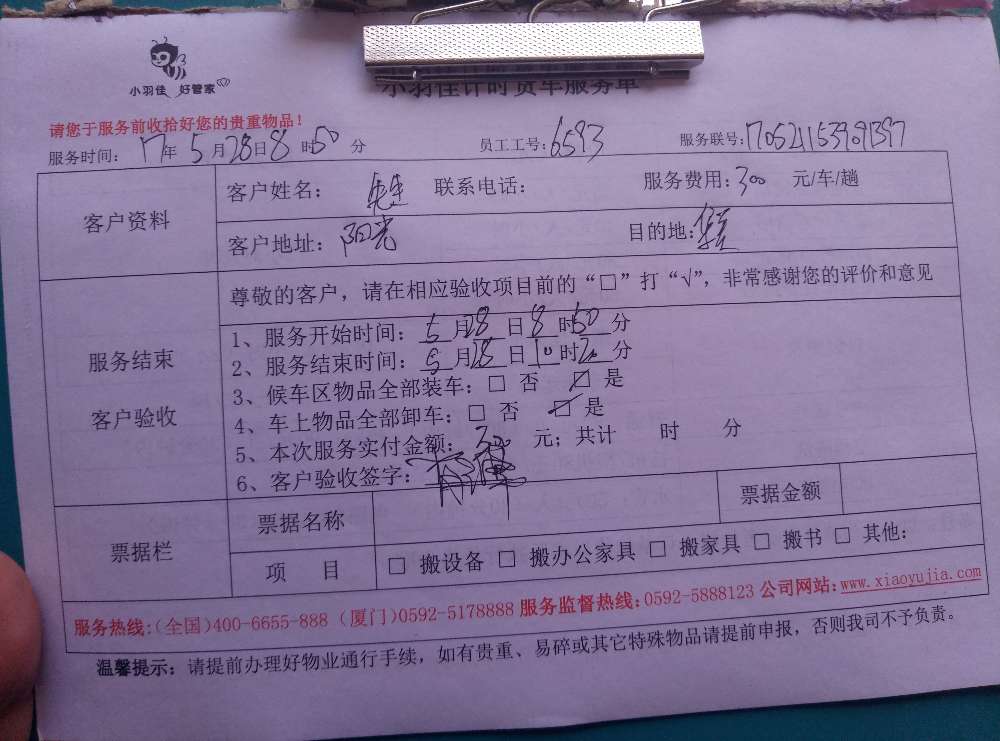 小羽佳 好管家
小羽佳计时货车服务单
请您于服务前收拾好您的贵重物品！
服务时间：17年5月28日8时50分 员工工号：6593 服务联号：
客户资料
客户姓名：先生 联系电话： 服务费用：300 元/车/趟
客户地址：阳光 目的地：
服务结束
客户验收
尊敬的客户，请在相应验收项目前的“□”打“√”，非常感谢您的评价和意见
1、服务开始时间：5月28日8时50分
2、服务结束时间：5月28日10时20分
3、候车区物品全部装车：□ 否 ☑ 是
4、车上物品全部卸车：□ 否 ☑ 是
5、本次服务实付金额：300 元；共计 时 分
6、客户验收签字：
票据栏
票据名称 票据金额
项 目 □ 搬设备 □ 搬办公家具 □ 搬家具 □ 搬书 □ 其他：
服务热线：(全国)400-6655-888 (厦门)0592-5178888 服务监督热线：0592-5888123 公司网站：www.xiaoyujia.com
温馨提示：请提前办理好物业通行手续，如有贵重、易碎或其它特殊物品请提前申报，否则我司不予负责。